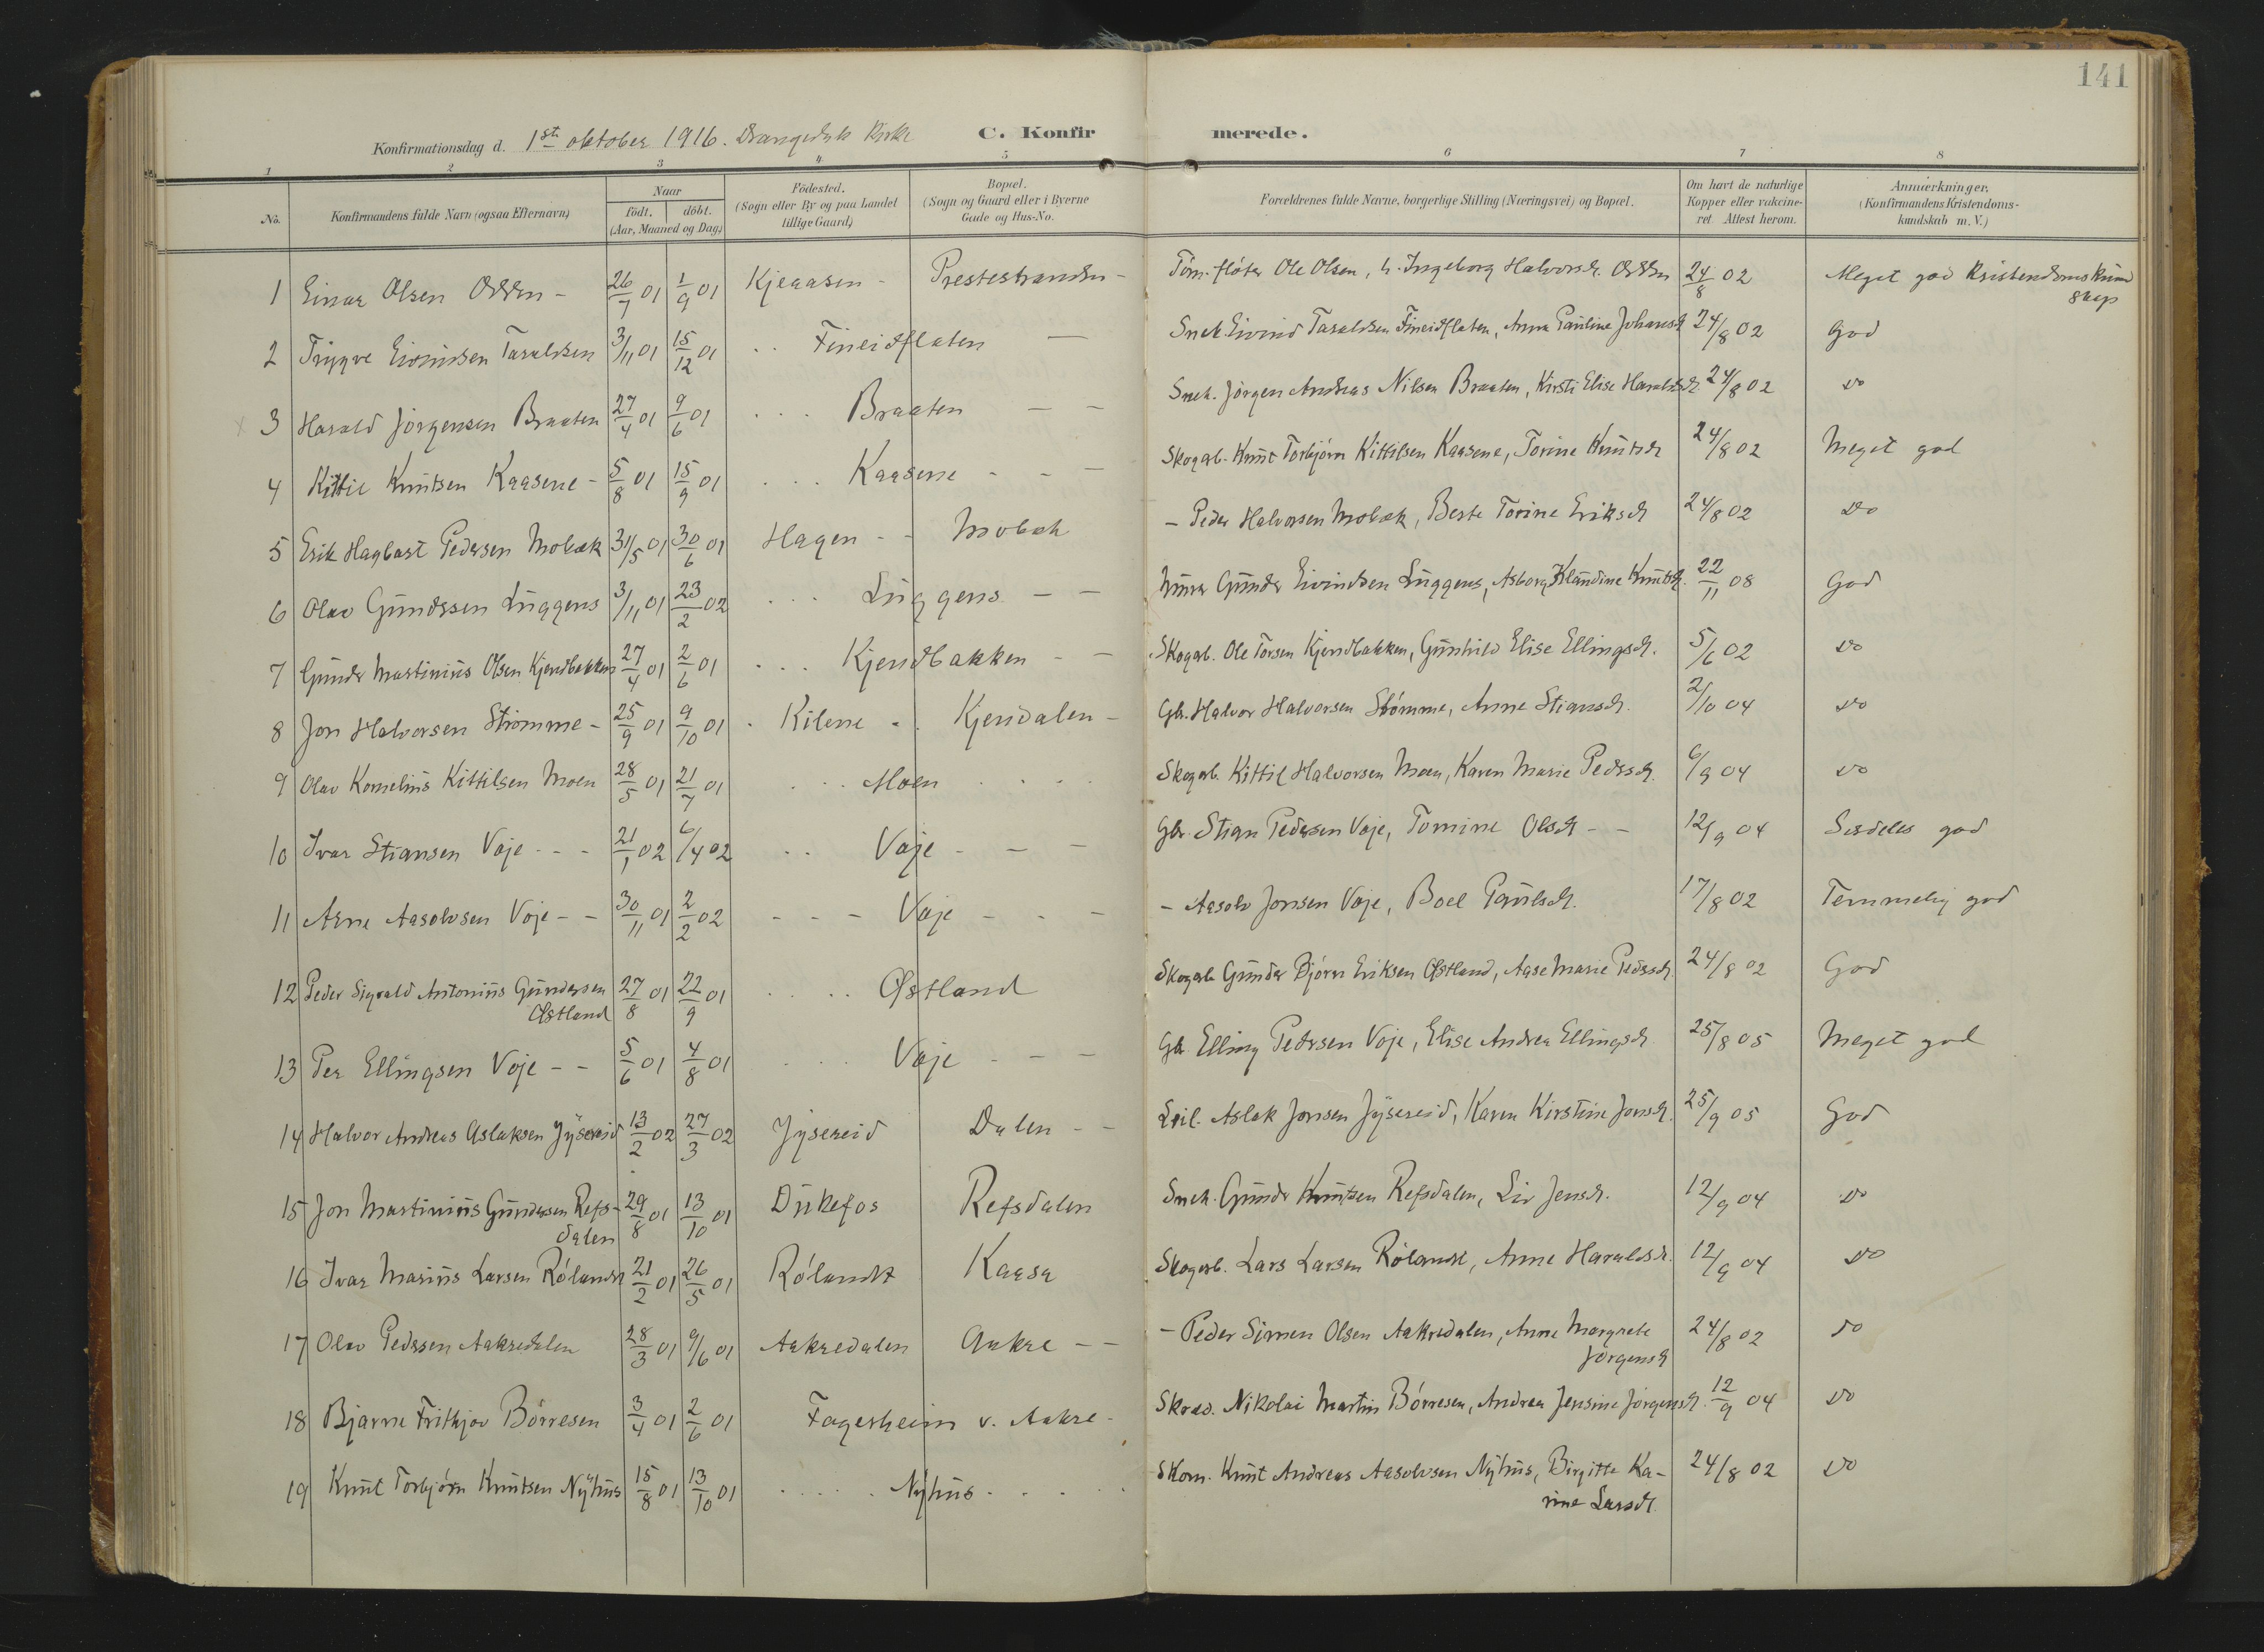 141
Konfirmationsdag d. 1ste oktober 1916. Drangedals Kirke C. Konfirmerede.
1 2 3 4 5 6 7 8
No. Konfirmandens fulde Navn (ogsaa Efternavn) Naar födt. döbt. (Aar, Maaned og Dag) Födested. (Sogn eller By og paa Landet tillige Gaard) Bopæl. (Sogn og Gaard eller i Byerne Gade og Hus-No. Forældrenes fulde Navne, borgerlige Stilling (Næringsvei) og Bopæl. Om havt de naturlige Kopper eller vakcineret. Attest herom. Anmærkninger. (Konfirmandens Kristendomskundskab m. V.)
1 Einar Olsen - 26/7 01 1/9 01 Kjeaasen - Prestestranden - Tøm.fløter Ole Olsen, h. Ingeborg Halvorsd. 24/8 02 Meget god Kristendomskundskap
2 Trygve Eivindsen Taraldsen 3/11 01 15/12 01 .. Fineidflaten — Snek. Eivind Taraldsen Fineidflaten, Anna Pauline Johansd. 24/8 02 God
x 3 Harald Jørgensen Braaten 27/4 01 9/6 01 ... Braaten — - Snek. Jørgen Andreas Nilsen Braaten, Kirsti Elise Haraldsd. 24/8 02 do
4 Kittil Knutsen Kaasene - 5/8 01 15/9 01 ... Kaasene - - - Skogarb. Knut Torbjørn Kittilsen Kaasene, Torine Knutsd. 24/8 02 Meget god
5 Erik Hagbart Pedersen Mobæk 31/5 01 30/6 01 Hagen - - Mobæk - Peder Halvorsen Mobæk, Berte Torine Eriksd. 24/8 02 do
6 Olav Gundersen Luggens 3/11 01 23/2 02 ... Luggens - - Murer Gunder Eivindsen Luggens, Asborg Klaudine Knutsd. 22/11 08 God
7 Gunder Martinius Olsen Kjendbakken 27/4 01 2/6 01 ... Kjendbakken - - Skogarb. Ole Torsen Kjendbakken, Gunhild Elise Ellingsd. 5/6 02 do
8 Jon Halvorsen Strømme - 25/9 01 9/10 01 . Kilene .. Kjendalen - Gbr. Halvor Halvorsen Strømme, Anne Stiansd. 2/10 04 do
9 Olav Kornelius Kittilsen Moen 28/5 01 21/7 01 ... Moen .... Skogarb. Kittil Halvorsen Moen, Karen Marie Pedersd. 6/9 04 do
10 Ivar Stiansen Voje - - - 21/1 02 6/4 02 .. Voje - - - Gbr. Stian Pedersen Voje, Tomine Olsd. - - 12/9 04 Serdeles god
11 Arne Aasolvsen Voje - - 30/11 01 2/2 02 - - - Voje - - - - Aasolv Jonsen Voje, Boel Paulsd. 17/8 02 Temmelig god
12 Peder Sigvald Antonius Gundersen Østland 27/8 01 22/9 01 .... Østland Skogarb. Gunder Bjørn Eriksen Østland, Aase Marie Pedersd. 24/8 02 God
13 Per Ellingsen Voje - - 5/6 01 4/8 01 .. Voje - - - Gbr. Elling Pedersen Voje, Elise Andrea Ellingsd. 25/8 05 Meget god
14 Halvor Andreas Aslaksen Jysereid 13/2 02 27/3 02 Jysereid Dalen - - Leil. Aslak Jonsen Jysereid, Karen Kirstine Jonsd. 25/9 05 God
15 Jon Martinius Gundersen Refsdalen 29/8 01 13/10 01 Dukefos Refsdalen Snek. Gunder Knutsen Refsdalen, Liv Jensd. 12/9 04 do
16 Ivar Marius Larsen Rølandt 21/2 01 26/5 01 Rølandt Kaasa Skogarb. Lars Larsen Rølandt, Anne Haraldsd. 12/9 04 do
17 Olav Pedersen Aakredalen 28/3 01 9/6 01 Aakredalen Aakre - - - Peder Simen Olsen Aakredalen, Anne Margrete Jørgensd. 24/8 02 do
18 Bjarne Fritkjov Børresen 3/4 01 2/6 01 Fagerheim v. Aakre - Skræd. Nikolai Martin Børresen, Andrea Jensine Jørgensd. 12/9 04 do
19 Knut Torbjørn Knutsen Nyhus 15/8 01 13/10 01 ..... Nyhus ..... Skom. Knut Andreas Aasolvsen Nyhus, Birgitte Karine Larsd. 24/8 02 do